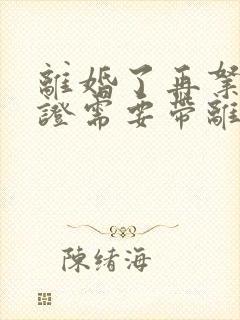 離婚了再
證需要帶離
陳緒海